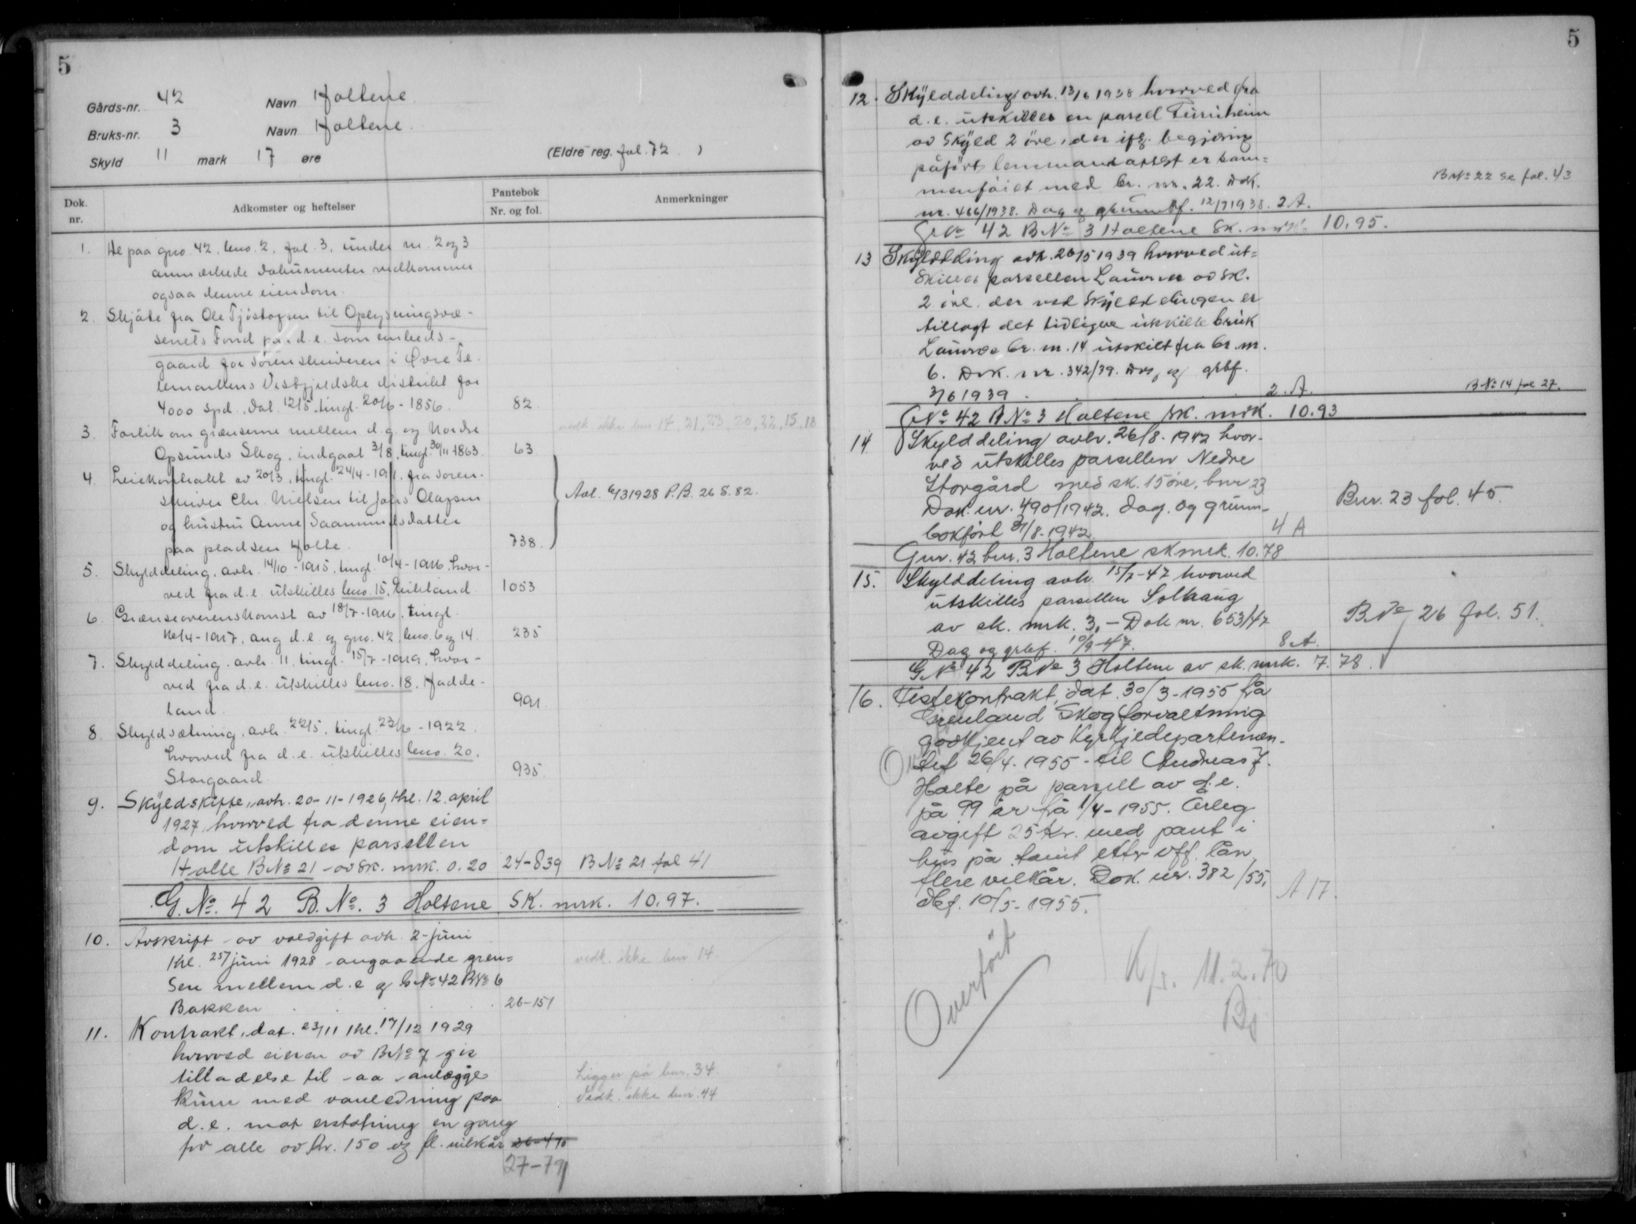 5
Gårds-nr. 42 Navn Holtene
Bruks-nr. 3 Navn Holtene.
Skyld 11 mark 17 øre (Eldre reg. fol. 72 )
Dok. nr. Adkomster og heftelser Pantebok Nr. og fol. Anmerkninger
1. De paa gno. 42, bno. 2, fol. 3, under nr. 2 og 3
anmærkede dokumenter vedkommer
ogsaa denne eiendom.
2. Skjöte fra Ole Tjöstofsen til Oplysningsvæ-
senets Fond paa d.e. som embeds-
gaard for sorenskriveren i Øvre Te-
lemarkens Vestfjeldske distrikt for
4000 spd. Dat. 12/5, tingl. 20/6 - 1856. 82
3. Forlik om grænserne mellem d.g. og Nordre vedk. ikke bnr 14, 21, 23, 20, 22, 15, 18
Opsunds Skog, indgaat 3/8, tingl. 30/11 1863. 63
4. Leiekontrakt av 20/3, tingl. 24/4 - 1911, fra soren-
skriver Chr. Nielsen til Jacob Olavsen Avl. 6/3 1928 P.B. 26 S. 82.
og hustru Anne Saamundsdatter
paa pladsen Holte. 738.
5. Skylddeling, avh. 14/10 - 1915, tingl. 10/4 - 1916, hvor-
ved fra d.e. utskilles bno. 15, 1053
6. Grænseoverenskomst av 18/7 - 1916, tingl.
16/4 - 1917, ang d.e. og gno. 42, bno. 6 og 14. 235
7. Skylddeling, avh. 11, tingl. 15/7 - 1919, hvor-
ved fra d.e. utskilles bno. 18, Hadde-
land. 991
8. Skyldsætning, avh. 22/5, tingl. 23/6 - 1922.
hvorved fra d.e. utskilles bno. 20.
Storgaard. 935
9. Skyldskifte, avh. 20-11-1926, thl. 12. april
1927, hvorved fra denne eien=
dom utskilles parsellen
Holte B№ 21 av sk. mrk. 0.20 24-839 B№ 21 fol 41
G. №. 42 B. №. 3 Holtene SK. mrk. 10.97.
10. Avskrift av voldgift avh. 2-juni
thl. 25/ juni 1928 angaaende gren= vedk. ikke bnr 14
sen mellem d.e og G№ 42 B№ 6
Bakken 26-151
11. Kontrakt, dat. 23/11 thl. 17/12 1929
hvorved eieren av B№ 7 gis
tilladelse til aa anlægge Ligger på bnr. 34.
kum med vannledning paa Vedk. ikke bnr. 44
d.e. mot erstatning en gang
for alle av kr. 150 og fl. vilkår 26-410
27-79
5
12. Skylddeling avh. 13/6 1938 hvorved fra
d.e. utskilles en parsel Furuheim
av Skyld 2 öre, der iflg. begjæring
påfört lensmandattest er sam=
menföiet med br. nr. 22. Dok. B№ 22 se fol. 43
nr. 466/1938. Dag og grunnbf. 12/7 1938. 2 A.
G№ 42 B№ 3 Holtene Sk. mrk. 10,95.
13 Skylddeling avh. 20/5 1939 hvorved ut=
skilles parsellen Laurvee av sk.
2 öre, der ved skylddelingen er
tillagt det tidligere utskilte bruk
Laurvee br. nr. 14 utskilt fra br. nr.
6. Dok. nr. 342/39. Dag og grbf.
3/6 1939 2. A. B№ 14 fol 27.
G№ 42 B№ 3 Holtene sk. mrk. 10.93
14 Skylddeling avh. 26/8-1942 hvor-
ved utskilles parsellen Nedre
Storgård med sk. 15 öre, bnr 23 Bnr. 23 fol. 45.
Dok. nr. 490/1942. Dag. og grunn-
bokfört 31/8-1942. 4 A
Gnr. 42 bnr. 3 Holtene skmrk. 10.78
15. Skylddeling avh. 15/7-47 hvorved
utskilles parsellen Solhaug
av sk. mrk. 3,- Dok nr. 653/47 B№ 26 fol. 51.
Dag og grbf. 10/9-47. 8 A.
G№ 42 B№ 3 Holtene av sk. mrk. 7.78.
16. Festekontrakt, dat. 30/3-1955 frå
Grenland Skogforvaltning
godkjent av Kyrkjedepartemen-
tet 26/4.1955 - til Andreas J.
Holte på parsell av d.e.
på 99 år frå 1/4-1955. Årleg
avgift 25 kr. med pant i
hus på tomt etter off. lån
flere vilkår. Dok. nr. 382/55,
dbf. 10/5-1955. A 17.
Overfört
K/s. 11.2.70